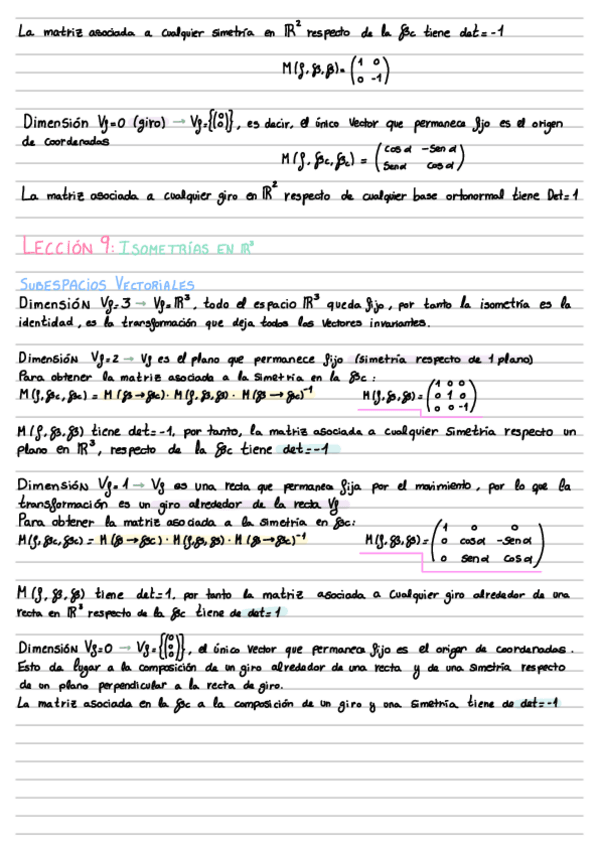 La matriz asociada a cualquier simetría en ℝ² respecto de la βc tiene det=-1
M(f,β,β)=(1 0
0 -1)
Dimensión Vf=0 (giro) → Vf={(0 0)}, es decir, el único vector que permanece fijo es el origen
de coordenadas
M(f,βc,βc) = (cos α -Sen α
Sen α cos α)
La matriz asociada a cualquier giro en ℝ² respecto de cualquier base ortonormal tiene Det=1
LECCIÓN 9: ISOMETRÍAS EN ℝ³
SUBESPACIOS VECTORIALES
Dimensión Vf=3 → Vf=ℝ³, todo el espacio ℝ³ queda fijo, por tanto la isometría es la
identidad, es la transformación que deja todos los vectores invariantes.
Dimensión Vf=2 → Vf es el plano que permanece fijo (simetría respecto de 1 plano)
Para obtener la matriz asociada a la simetría en la βc:
M(f,βc,βc) = M(β→βc)·M(f,β,β)·M(β→βc)⁻¹ M(f,β,β)=(1 0 0
0 1 0
0 0 -1)
M(f,β,β) tiene det=-1, por tanto, la matriz asociada a cualquier simetría respecto un
plano en ℝ³, respecto de la βc tiene det=-1
Dimensión Vf=1 → Vf es una recta que permanece fija por el movimiento, por lo que la
transformación es un giro alrededor de la recta Vf
Para obtener la matriz asociada a la simetría en βc:
M(f,βc,βc) = M(β→βc)·M(f,β,β)·M(β→βc)⁻¹ M(f,β,β)=(1 0 0
0 cos α -Sen α
0 sen α cos α)
M(f,β,β) tiene det=1, por tanto la matriz asociada a cualquier giro alrededor de una
recta en ℝ³ respecto de la βc tiene de det=1
Dimensión Vf=0 → Vf={(0 0 0)}, el único vector que permanece fijo es el origen de coordenadas.
Esto da lugar a la composición de un giro alrededor de una recta y de una simetría respecto
de un plano perpendicular a la recta de giro.
La matriz asociada en la βc a la composición de un giro y una simetría tiene de det=-1